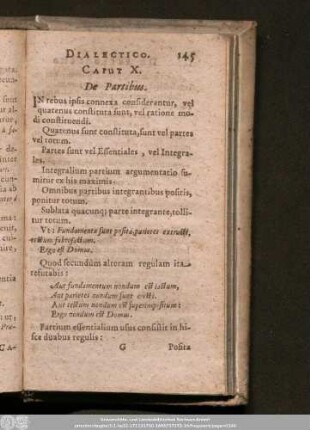 DIALECTICO. 145
CAPUT X.
De Partibus.
IN rebus ipsis connexa considerantur, vel
quatenus constituta sunt, vel ratione mo-
di constituendi.
Quatenus sunt constituta, sunt vel partes
vel totum.
Partes sunt vel Essentiales, vel Integra-
les.
Integralium partium argumentatio su-
mitur ex his maximis:
Omnibus partibus integrantibus positis,
ponitur totum.
Sublata quacunq; parte integrante, tolli-
tur totum.
Ut: Fundamenta sunt posita, parietes extructi,
tectum
Ergo est Domus.
Quod secundùm alteram regulam ita
refutabis:
Aut fundamentum nondum est jactum,
Aut parietes nondum sunt erecti.
Aut tectum nondum est superimpositum:
Ergo nondum est Domus.
Partium essentialium usus consistit in hi-
sce duabus regulis:
G Posita